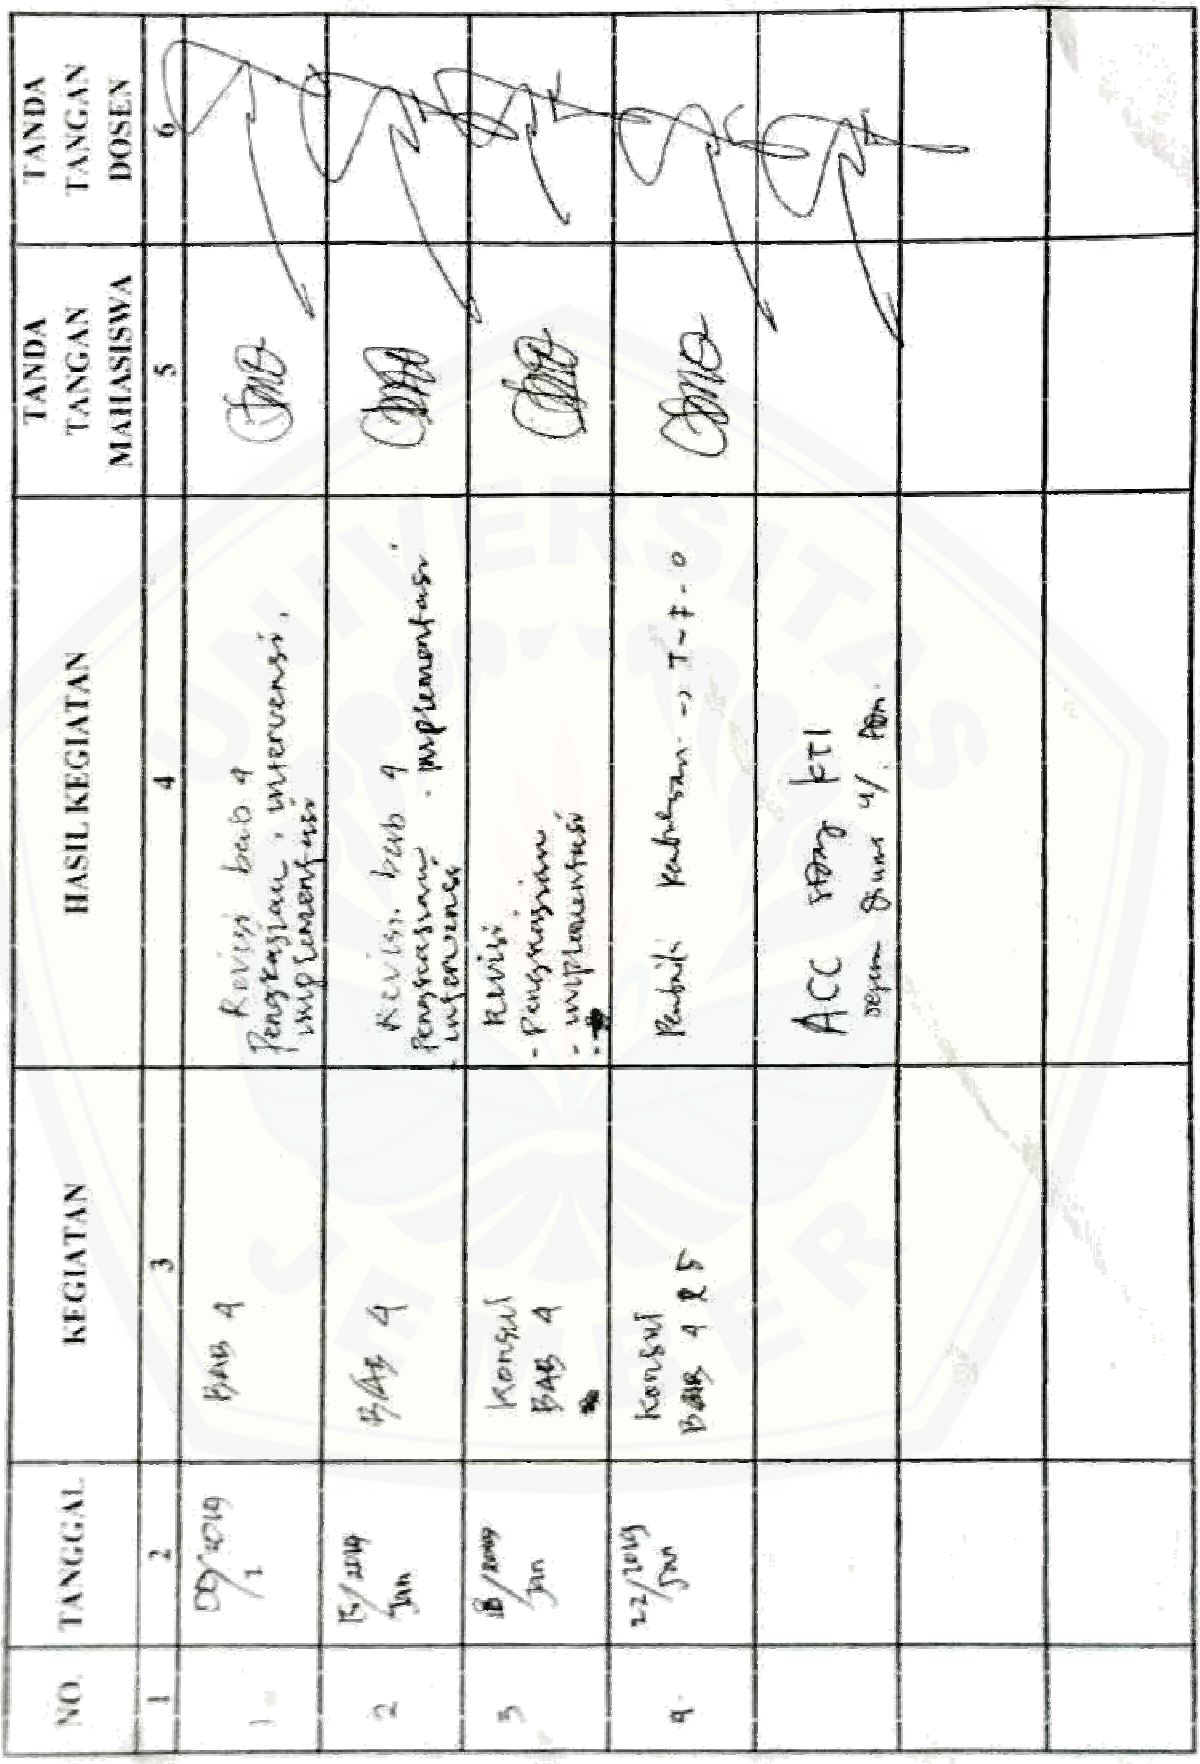 NO.
TANGGAL
KEGIATAN
HASIL KEGIATAN
TANDA
TANGAN
MAHASISWA
TANDA
TANGAN
DOSEN
1
2
3
4
5
6
1
/2019
1
BAB 4
Revisi bab 4
Pengkajian, intervensi,
implementasi
2
15/2019
Jan
BAB 4
Revisi bab 4
Pengkajian . implementasi
- intervensi
3
18/2019
Jan
Konsul
BAB 4
Revisi
- Pengkajian
- implementasi
4.
22/2019
Jan
Konsul
BAB 4 & 5
-> T - F - O
ACC KTI
UNIVERSITAS
JEMBER